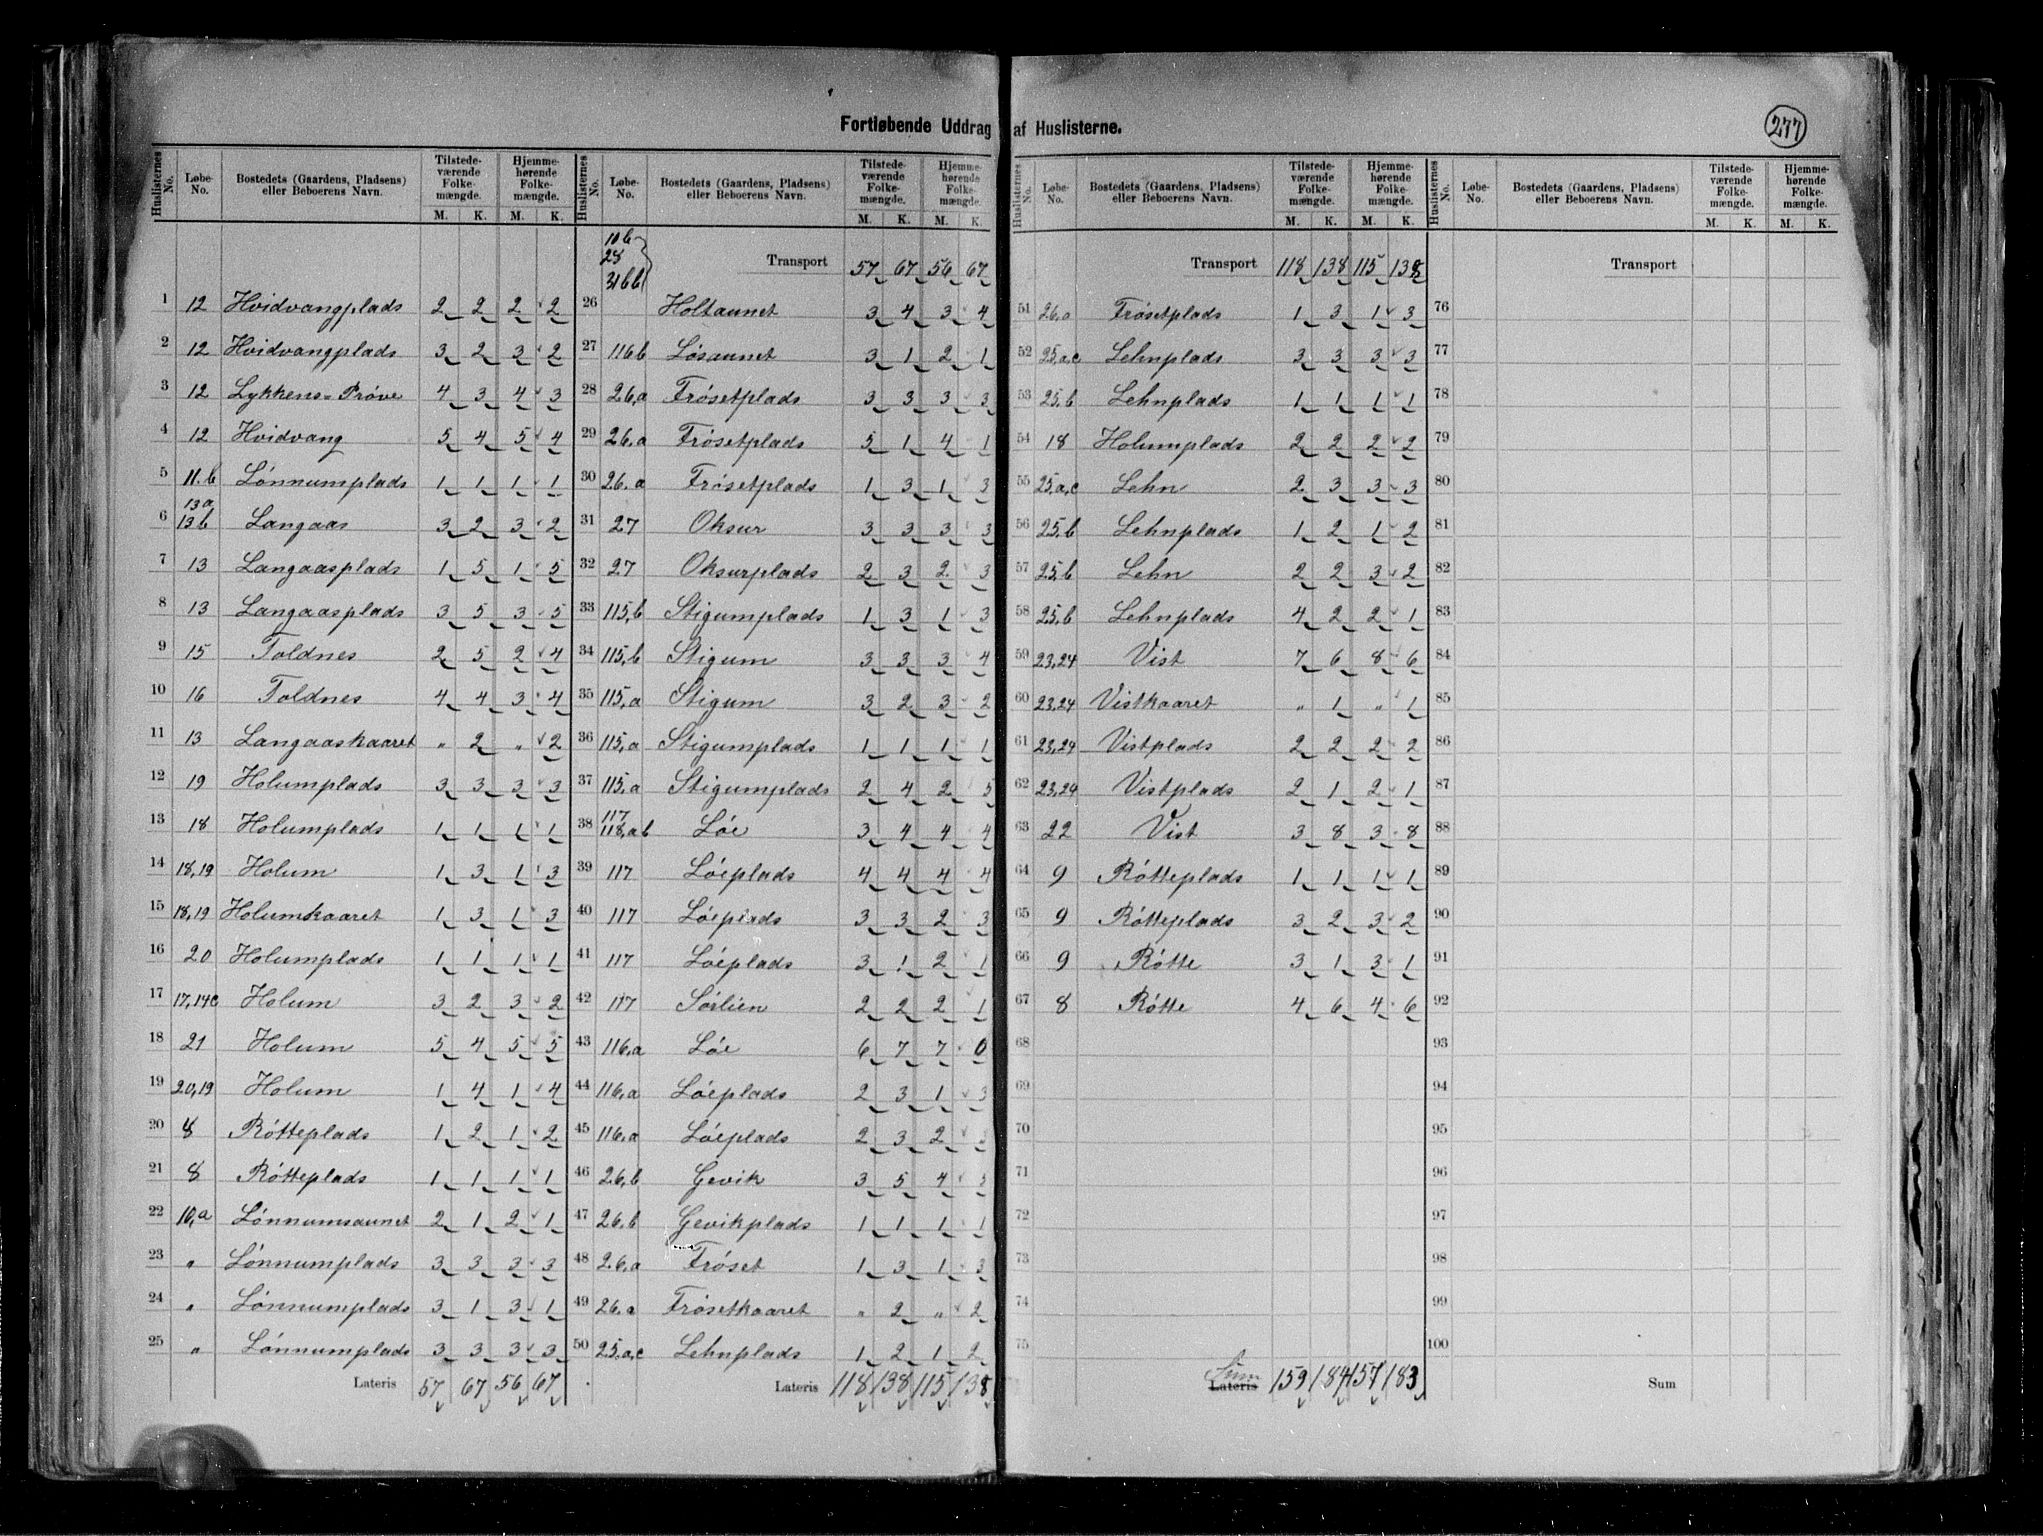 Fortløbende Uddrag af Huslisterne.
277
Huslisternes No. Løbe-No. Bostedets (Gaardens, Pladsens) eller Beboerens Navn. Tilstedeværende Folkemængde. M. K. Hjemmehørende Folkemængde. M. K.
1 12 Hvidvangplads 2 2 2 2
2 12 Hvidvangplads 3 2 3 2
3 12 Lykkens-Prøve 4 3 4 3
4 12 Hvidvang 5 4 5 4
5 11.b Lønnumplads 1 1 1 1
6 13a 13b Langaas 3 2 3 2
7 13 Langaasplads 1 5 1 5
8 13 Langaasplads 3 5 3 5
9 15 Toldnes 2 5 2 4
10 16 Toldnes 4 4 3 4
11 13 Langaaskaaret " 2 " 2
12 19 Holumplads 3 3 3 3
13 18 Holumplads 1 1 1 1
14 18,19 Holum 1 3 1 3
15 18,19 Holumkaaret 1 3 1 3
16 20 Holumplads 1 1 1 1
17 17,14c Holum 3 2 3 2
18 21 Holum 5 4 5 5
19 20,19 Holum 1 4 1 4
20 8 Røtteplads 1 2 1 2
21 8 Røtteplads 1 1 1 1
22 10,a Lønnumsaunet 2 1 2 1
23 " Lønnumplads 3 3 3 3
24 " Lønnumplads 3 1 3 1
25 " Lønnumplads 3 3 3 3
Lateris 57 67 56 67
Huslisternes No. Løbe-No. Bostedets (Gaardens, Pladsens) eller Beboerens Navn. Tilstedeværende Folkemængde. M. K. Hjemmehørende Folkemængde. M. K.
Transport 57 67 56 67
10b
28
26 Holtaunet 3 4 3 4
27 116b Løsaunet 3 1 2 1
28 26,a Frøsetplads 3 3 3 3
29 26,a Frøsetplads 5 1 4 1
30 26,a Frøsetplads 1 3 1 3
31 27 Oksur 3 3 3 3
32 27 Oksurplads 2 3 2 3
33 115,b Stigumplads 1 3 1 3
34 115,b Stigum 3 3 3 4
35 115,a Stigum 3 2 3 2
36 115,a Stigumplads 1 1 1 1
37 115,a Stigumplads 2 4 2 5
38 117 118,ab Løe 3 4 4 4
39 117 Løeplads 4 4 4 4
40 117 Løeplads 3 3 2 3
41 117 Løeplads 3 1 2 1
42 117 Sørlien 2 2 2 1
43 116,a Løe 6 7 7 0
44 116,a Løeplads 2 3 1 3
45 116,a Løeplads 2 3 2 3
46 26,b Gevik 3 5 4
47 26,b Gevikplads 1 1 1 1
48 26,a Frøset 1 3 1 3
49 26,a Frøsetkaaret " 2 " 2
50 25,a,c Lehnplads 1 2 1 2
Lateris 118 138 115 138
Huslisternes No. Løbe-No. Bostedets (Gaardens, Pladsens) eller Beboerens Navn. Tilstedeværende Folkemængde. M. K. Hjemmehørende Folkemængde. M. K.
Transport 118 138 115 138
51 26,a Frøsetplads 1 3 1 3
52 25,a,c Lehnplads 3 3 3 3
53 25,b Lehnplads 1 1 1 1
54 18 Holumplads 2 2 2 2
55 25,a,c Lehn 2 3 3 3
56 25,b Lehnplads 1 2 1 2
57 25,b Lehn 2 2 3 2
58 25,b Lehnplads 4 2 2 1
59 23,24 Vist 7 6 8 6
60 23,24 Vistkaaret " 1 " 1
61 23,24 Vistplads 2 2 2 2
62 23,24 Vistplads 2 1 2 1
63 22 Vist 3 8 3 8
64 9 Røtteplads 1 1 1 1
65 9 Røtteplads 3 2 3 2
66 9 Røtte 3 1 3 1
67 8 Røtte 4 6 4 6
68
69
70
71
72
73
74
75
Lateris Sum 159 184 157 183
Huslisternes No. Løbe-No. Bostedets (Gaardens, Pladsens) eller Beboerens Navn. Tilstedeværende Folkemængde. M. K. Hjemmehørende Folkemængde. M. K.
Transport
76
77
78
79
80
81
82
83
84
85
86
87
88
89
90
91
92
93
94
95
96
97
98
99
100
Sum